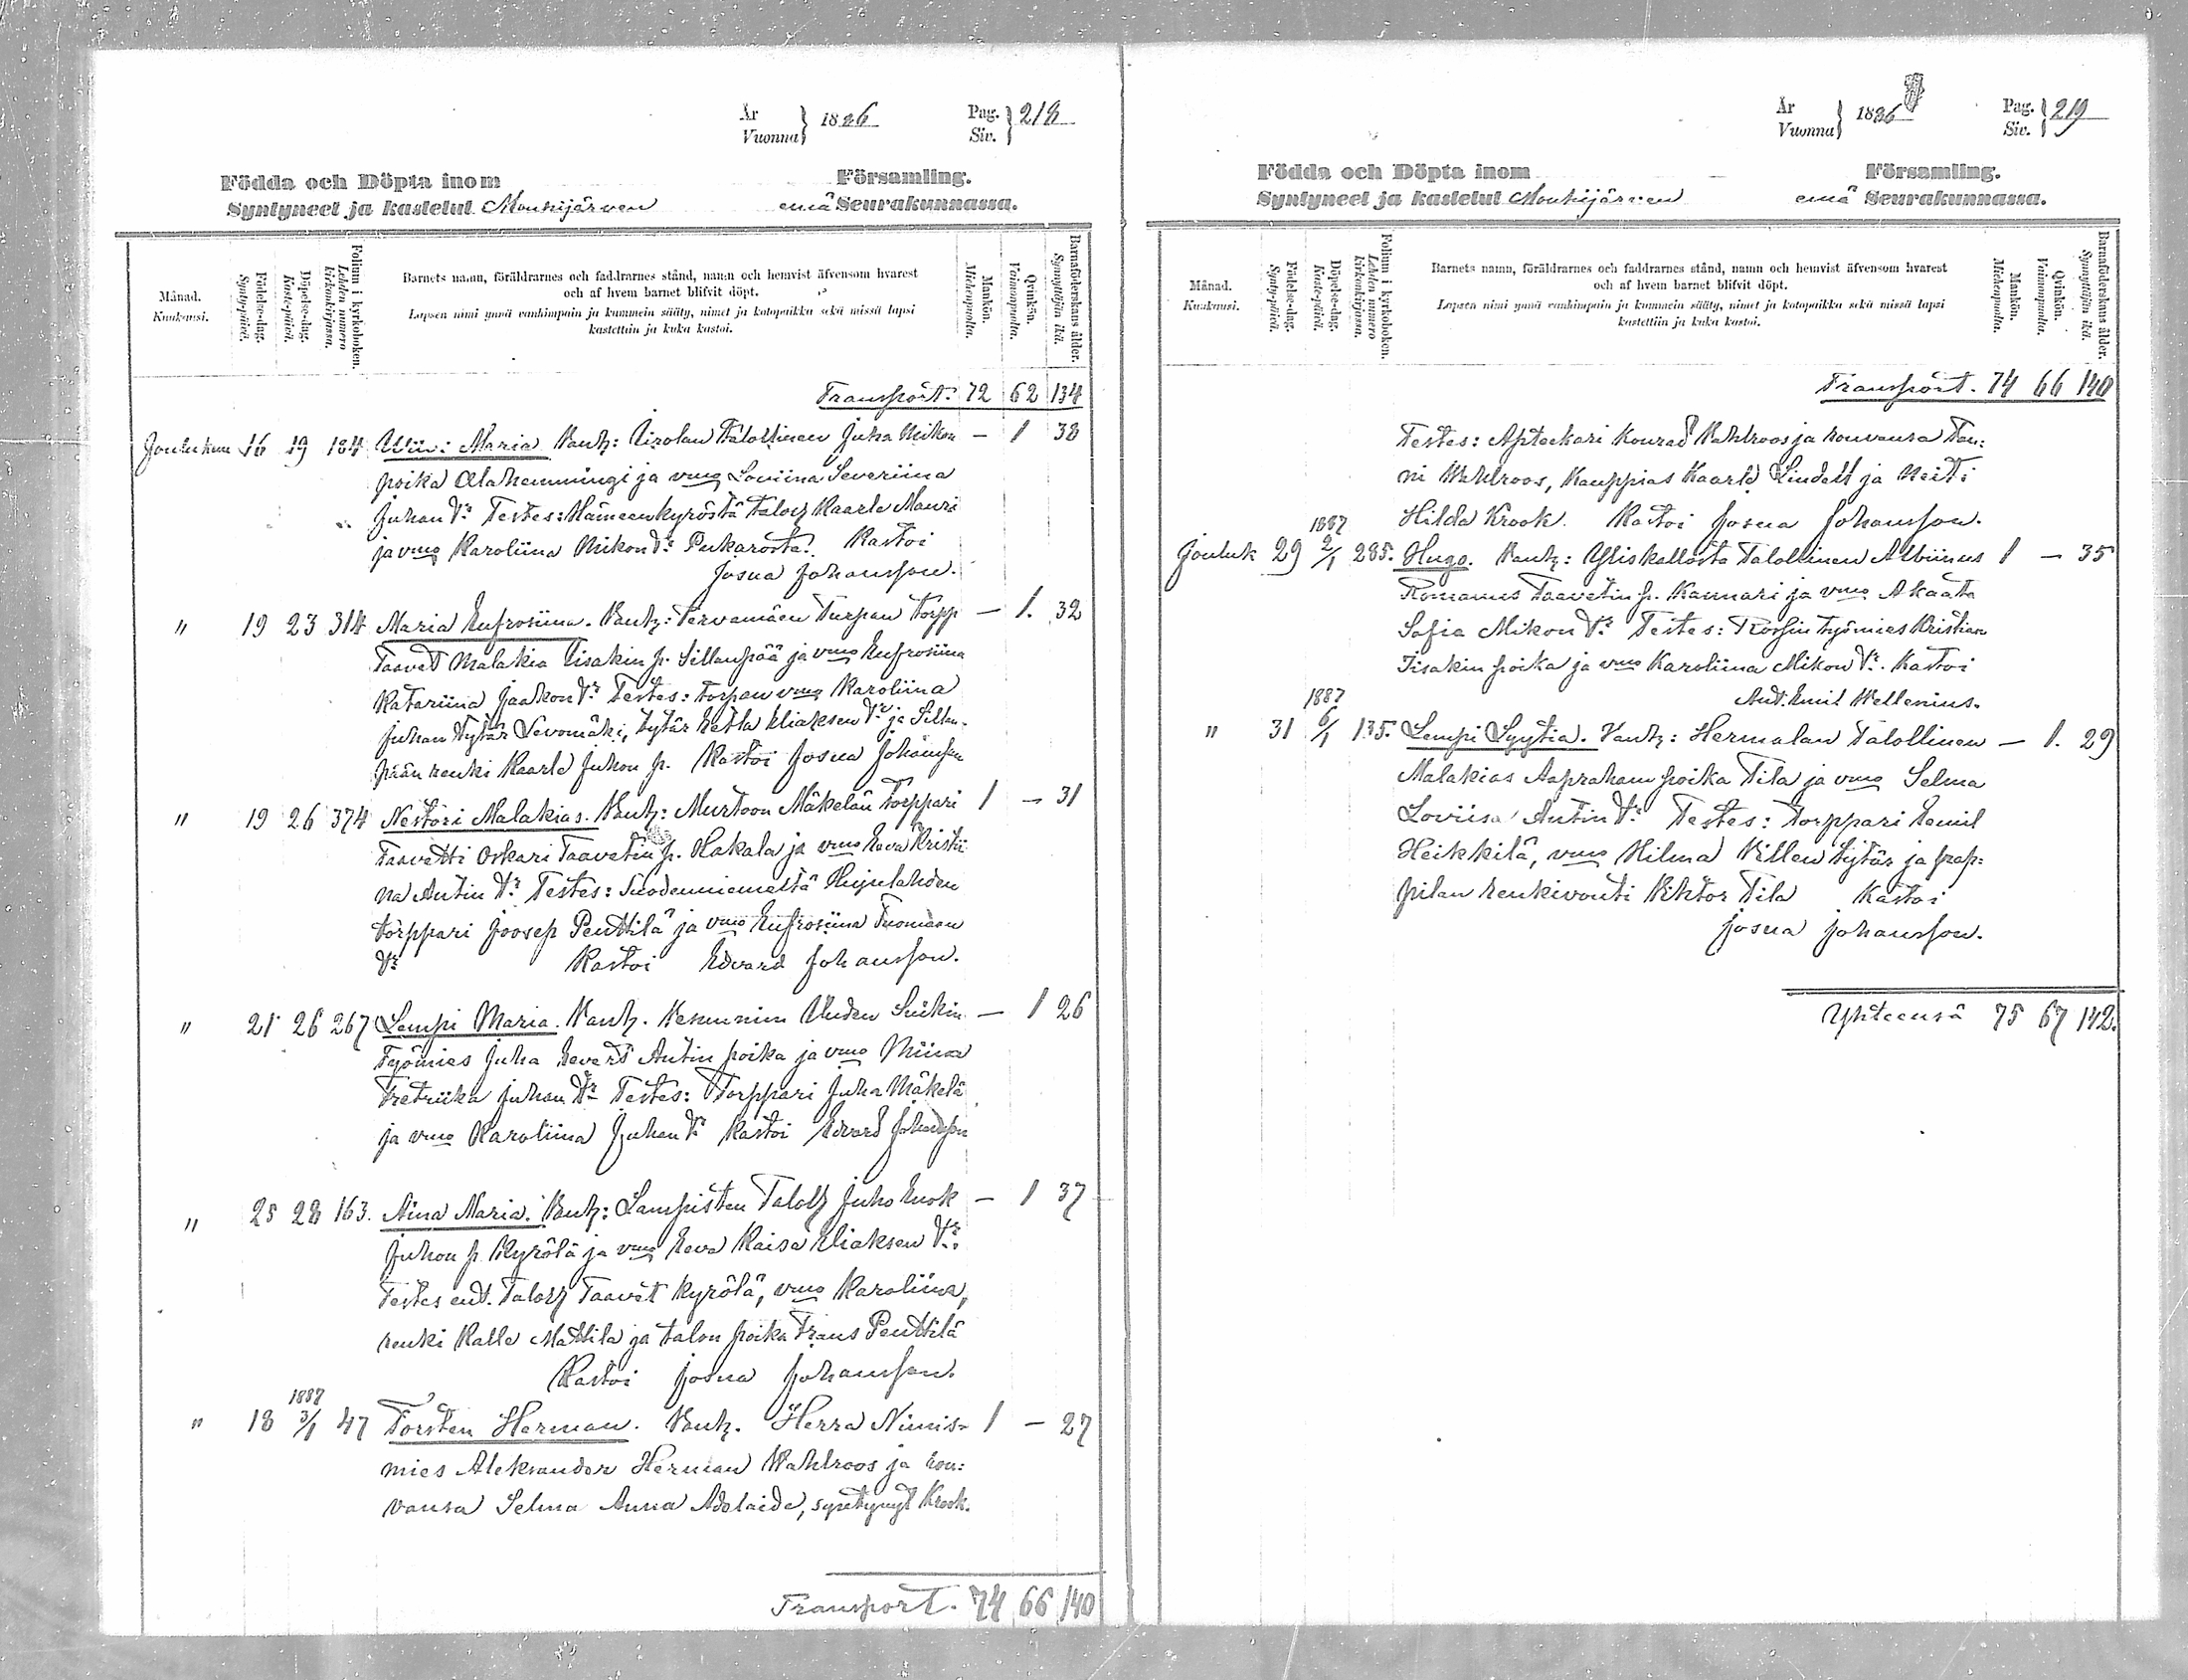 År
Vuonna } 1886 Pag.
Siv. } 218
Födda och Döpta inom Församling.
Syntyneet ja kastetut Mouhijärven emä Seurakunnassa.
Månad.
Kuukausi.
Födelse-dag.
Synty-päivä.
Döpelse-dag.
Kaste-päivä.
Folium i kyrkoboken.
Lehden numero
kirkonkirjassa.
Barnets namn, föräldrarnes och faddrarnes stånd, namn och hemvist äfvensom hvarest
och af hvem barnet blifvit döpt.
Lapsen nimi ynnä vanhimpain ja kummein sääty, nimet ja kotopaikka sekä missä lapsi
kastettiin ja kuka kastoi.
Mankön.
Miehenpuolta.
Qvinkön.
Vaimonpuolta.
Barnaföderskans ålder.
Synnyttäjän ikä.
Transport. 72 62 134
Joulukuu 16 19 184 Maria Vanh: Talollinen Juha Mikon — 1 38
poika Alahemmingi ja vmo Loviina Severiina
Juhan Tr Testes: Hämeenkyröstä Talol Kaarle Mauri
ja vmo Karoliina Mikon Tr Pukarosta. Kastoi
Josua Johansson.
" 19 23 314 Maria Eufrosiina. Vanh: Tervamäen Turpan torpp — 1. 32
Taavet Malakia Iisakin p. Sillanpää ja vmo Eufrosiina
Katariina Jaakon Tr Testes: torpan vmo Karoliina
Juhan tytär Levomäki, tytär Hetla Eliaksen Tr ja Sillan-
pään renki Kaarle Juhon p. Kastoi Josua Johansson
" 19 26 374 Nestori Malakias. Vanh: Murtoon Mäkelän Torppari 1 — 31
Taavetti Oskari Taavetin p. Hakala ja vmo Eeva Kristii
na Antin Tr Testes: Suodenniemeltä Hujulahden
torppari Joosep Penttilä ja vmo Eufrosiina Tuomaan
Tr Kastoi Edvard Johansson.
" 21 26 267 Lempi Maria. Vanh. Uuden Suikin — 1 26
Työmies Juha Evert Antin poika ja vmo Miina
Fretriika Juhan Tr Testes: Torppari Juha Mäkelä
ja vmo Karoliina Juhan Tr Kastoi Edvard Johansson
" 25 28 163. Aina Maria. Vanh: Lampisten Talol Juho Enok — 1 37
Juhon p. Kyrölä ja vmo Eeva Kaisa Eliaksen Tr.
Testes ent. Talol Taavet Kyrölä, vmo Karoliina,
renki Kalle Mattila ja talon poika Frans Penttilä
Kastoi Josua Johansson.
1887
" 18 3/1 47 Torsten Herman. Vanh. Herra Nimis- 1 — 27
mies Aleksander Herman Wahlroos ja rou:
vansa Selma Anna Adelaide, syntynyt Krook.
Transport. 74 66 140
År
Vuonna } 1886 Pag.
Siv. } 219
Födda och Döpta inom Församling.
Syntyneet ja kastetut Mouhijärven emä Seurakunnassa.
Månad.
Kuukausi.
Födelse-dag.
Synty-päivä.
Döpelse-dag.
Kaste-päivä.
Folium i kyrkoboken.
Lehden numero
kirkonkirjassa.
Barnets namn, föräldrarnes och faddrarnes stånd, namn och hemvist äfvensom hvarest
och af hvem barnet blifvit döpt.
Lapsen nimi ynnä vanhimpain ja kummein sääty, nimet ja kotopaikka sekä missä lapsi
kastettiin ja kuka kastoi.
Mankön.
Miehenpuolta.
Qvinkön.
Vaimonpuolta.
Barnaföderskans ålder.
Synnyttäjän ikä.
Transport. 74 66 140
Testes: Apteekari Konrad Wahlroos ja rouvansa Fan:
ni Wahlroos, Kauppias Kaarle Lindell ja Neiti
Hilda Krook. Kastoi Josua Johansson.
1887
Jouluk 29 2/1 285. Hugo. Vanh: Yliskallosta Talollinen Albiinus 1 — 35
Romanus Taavetin p. Kannari ja vmo Akaata
Sofia Mikon Tr Testes: työmies Kristian
Iisakin poika ja vmo Karoliina Mikon Tr. Kastoi
And. Emil Wellenius.
1887
" 31 6/1 135. Lempi Lyytia. Vanh: Hermalan Talollinen — 1. 29
Malakias Aapraham poika Tila ja vmo Selma
Loviisa Antin Tr Testes: Torppari Eemil
Heikkilä, vmo Hilma Villen tytär ja pap:
pilan renkivouti Vihtor Tila Kastoi
Josua Johansson.
Yhteensä 75 67 142.